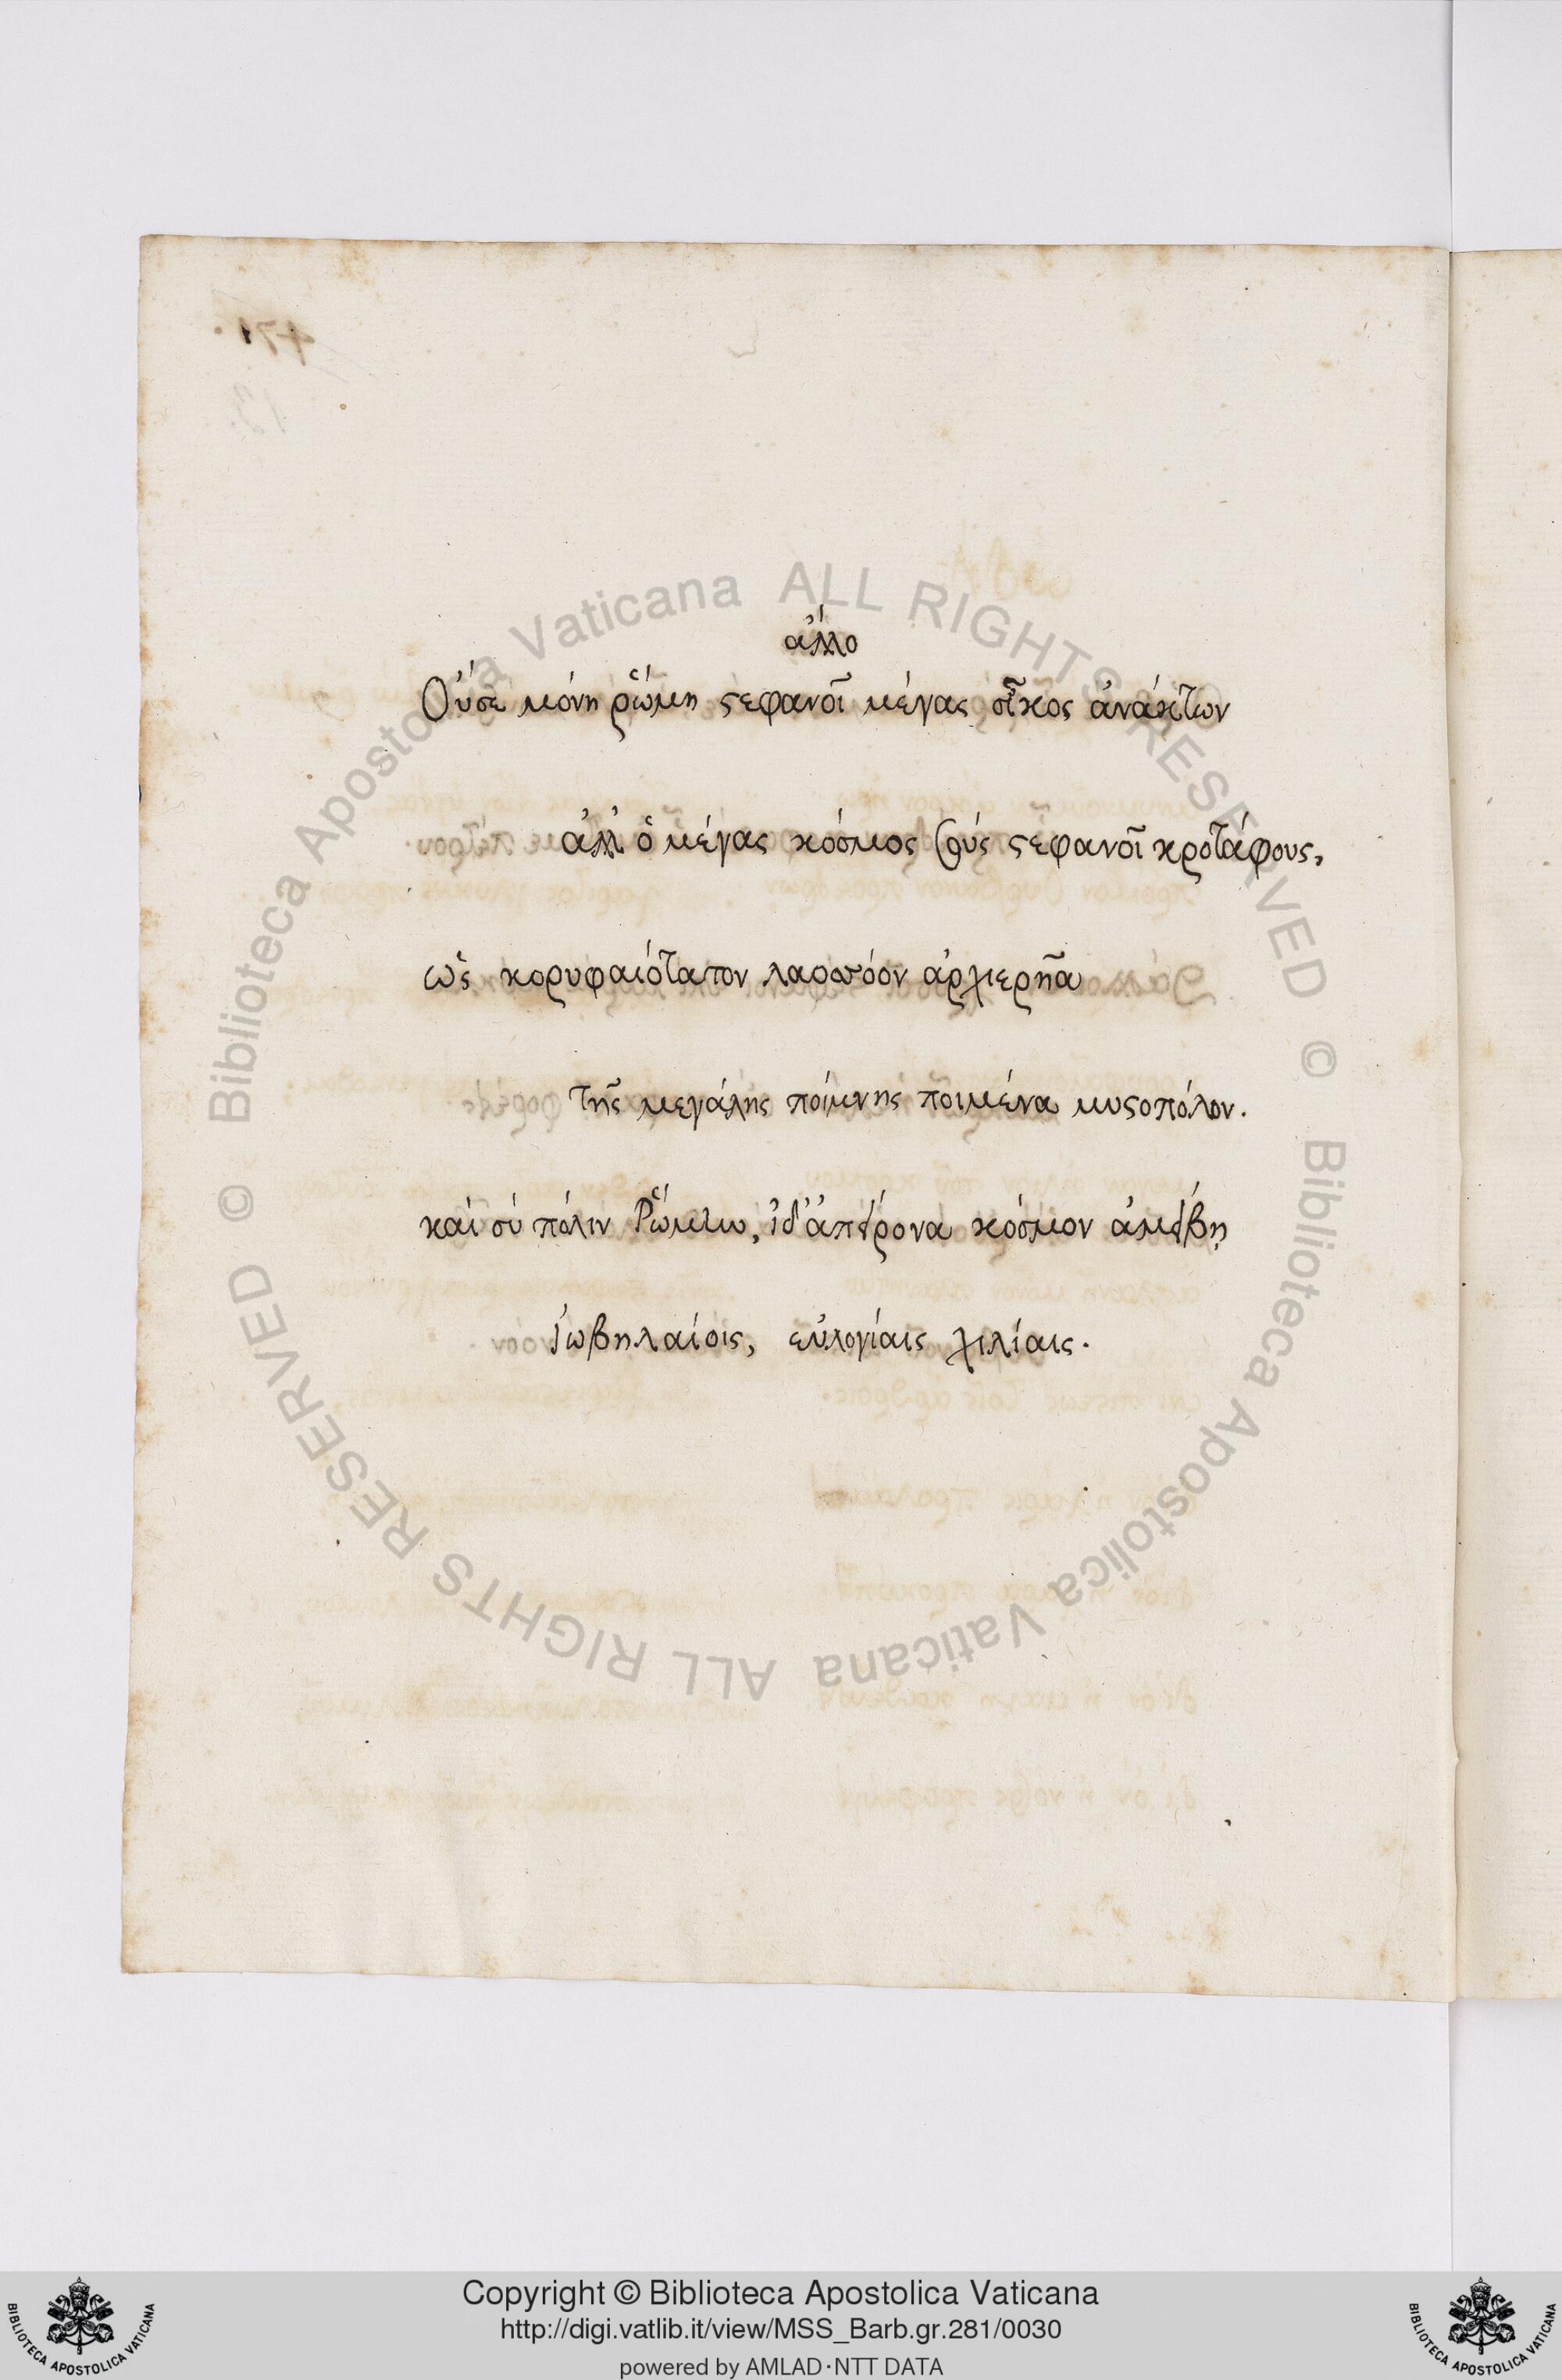 ἄλλο
Οὔσε μόνη ῥώμη ϛεφανοῖ μέγας οἶκος ἀνάκτων
ἀλλ' ὁ μέγας κόσμος σοὺς ϛεφανοῖ κροτάφους,
ὡς κορυφαιότατον λαοσσόον ἀρχιερῆα
τῆς μεγάλης ποίμνης ποιμένα μυϛοπόλον.
καὶ σὺ πόλιν Ῥώμην, ἰδ' ἀπείρονα κόσμον ἀμείβῃ
ἰωβηλαίοις, εὐλογίαις χιλίαις.
471.
13
© Biblioteca Apostolica Vaticana ALL RIGHTS RESERVED © Biblioteca Apostolica Vaticana ALL RIGHTS RESERVED
Copyright © Biblioteca Apostolica Vaticana
http://digi.vatlib.it/view/MSS_Barb.gr.281/0030
powered by AMLAD·NTT DATA
BIBLIOTECA APOSTOLICA VATICANA
BIBLIOTECA APOSTOLICA VATICANA